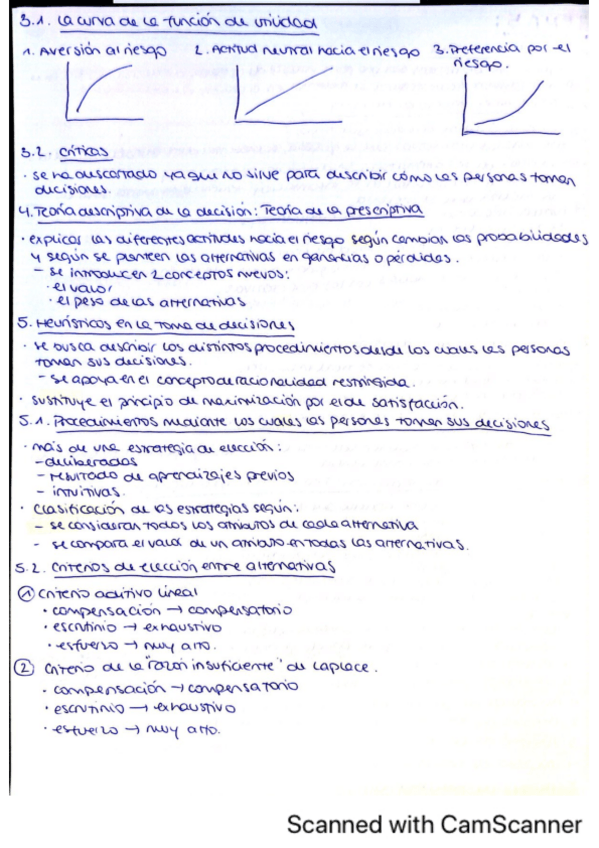 3.1. La curva de la función de utilidad
1. Aversión al riesgo 2. Actitud neutral hacia el riesgo 3. Preferencia por el
riesgo.
3.2. Críticas
· Se ha descartado ya que no sirve para describir cómo las personas toman
decisiones.
4. Teoría descriptiva de la decisión: Teoría de la prescriptiva
· explicar las diferentes actitudes hacia el riesgo según cambian las probabilidades
y según se planteen las alternativas en ganancias o pérdidas.
- Se introducen 2 conceptos nuevos:
· el valor
· el peso de las alternativas
5. Heurísticos en la toma de decisiones
· Se busca describir los distintos procedimientos desde los cuales las personas
toman sus decisiones.
- Se apoya en el concepto de racionalidad restringida.
· Sustituye el principio de maximización por el de satisfacción.
5.1. Procedimientos mediante los cuales las personas toman sus decisiones
· más de una estrategia de elección:
- deliberadas
- resultado de aprendizajes previos
- intuitivas.
· Clasificación de las estrategias según:
- se consideran todos los atributos de cada alternativa
- se compara el valor de un atributo en todas las alternativas.
5.2. Criterios de elección entre alternativas
① Criterio aditivo lineal
· compensación → compensatorio
· escrutinio → exhaustivo
· esfuerzo → muy alto.
② Criterio de la "razón insuficiente" de Laplace.
· compensación → compensatorio
· escrutinio → exhaustivo
· esfuerzo → muy alto.
Scanned with CamScanner